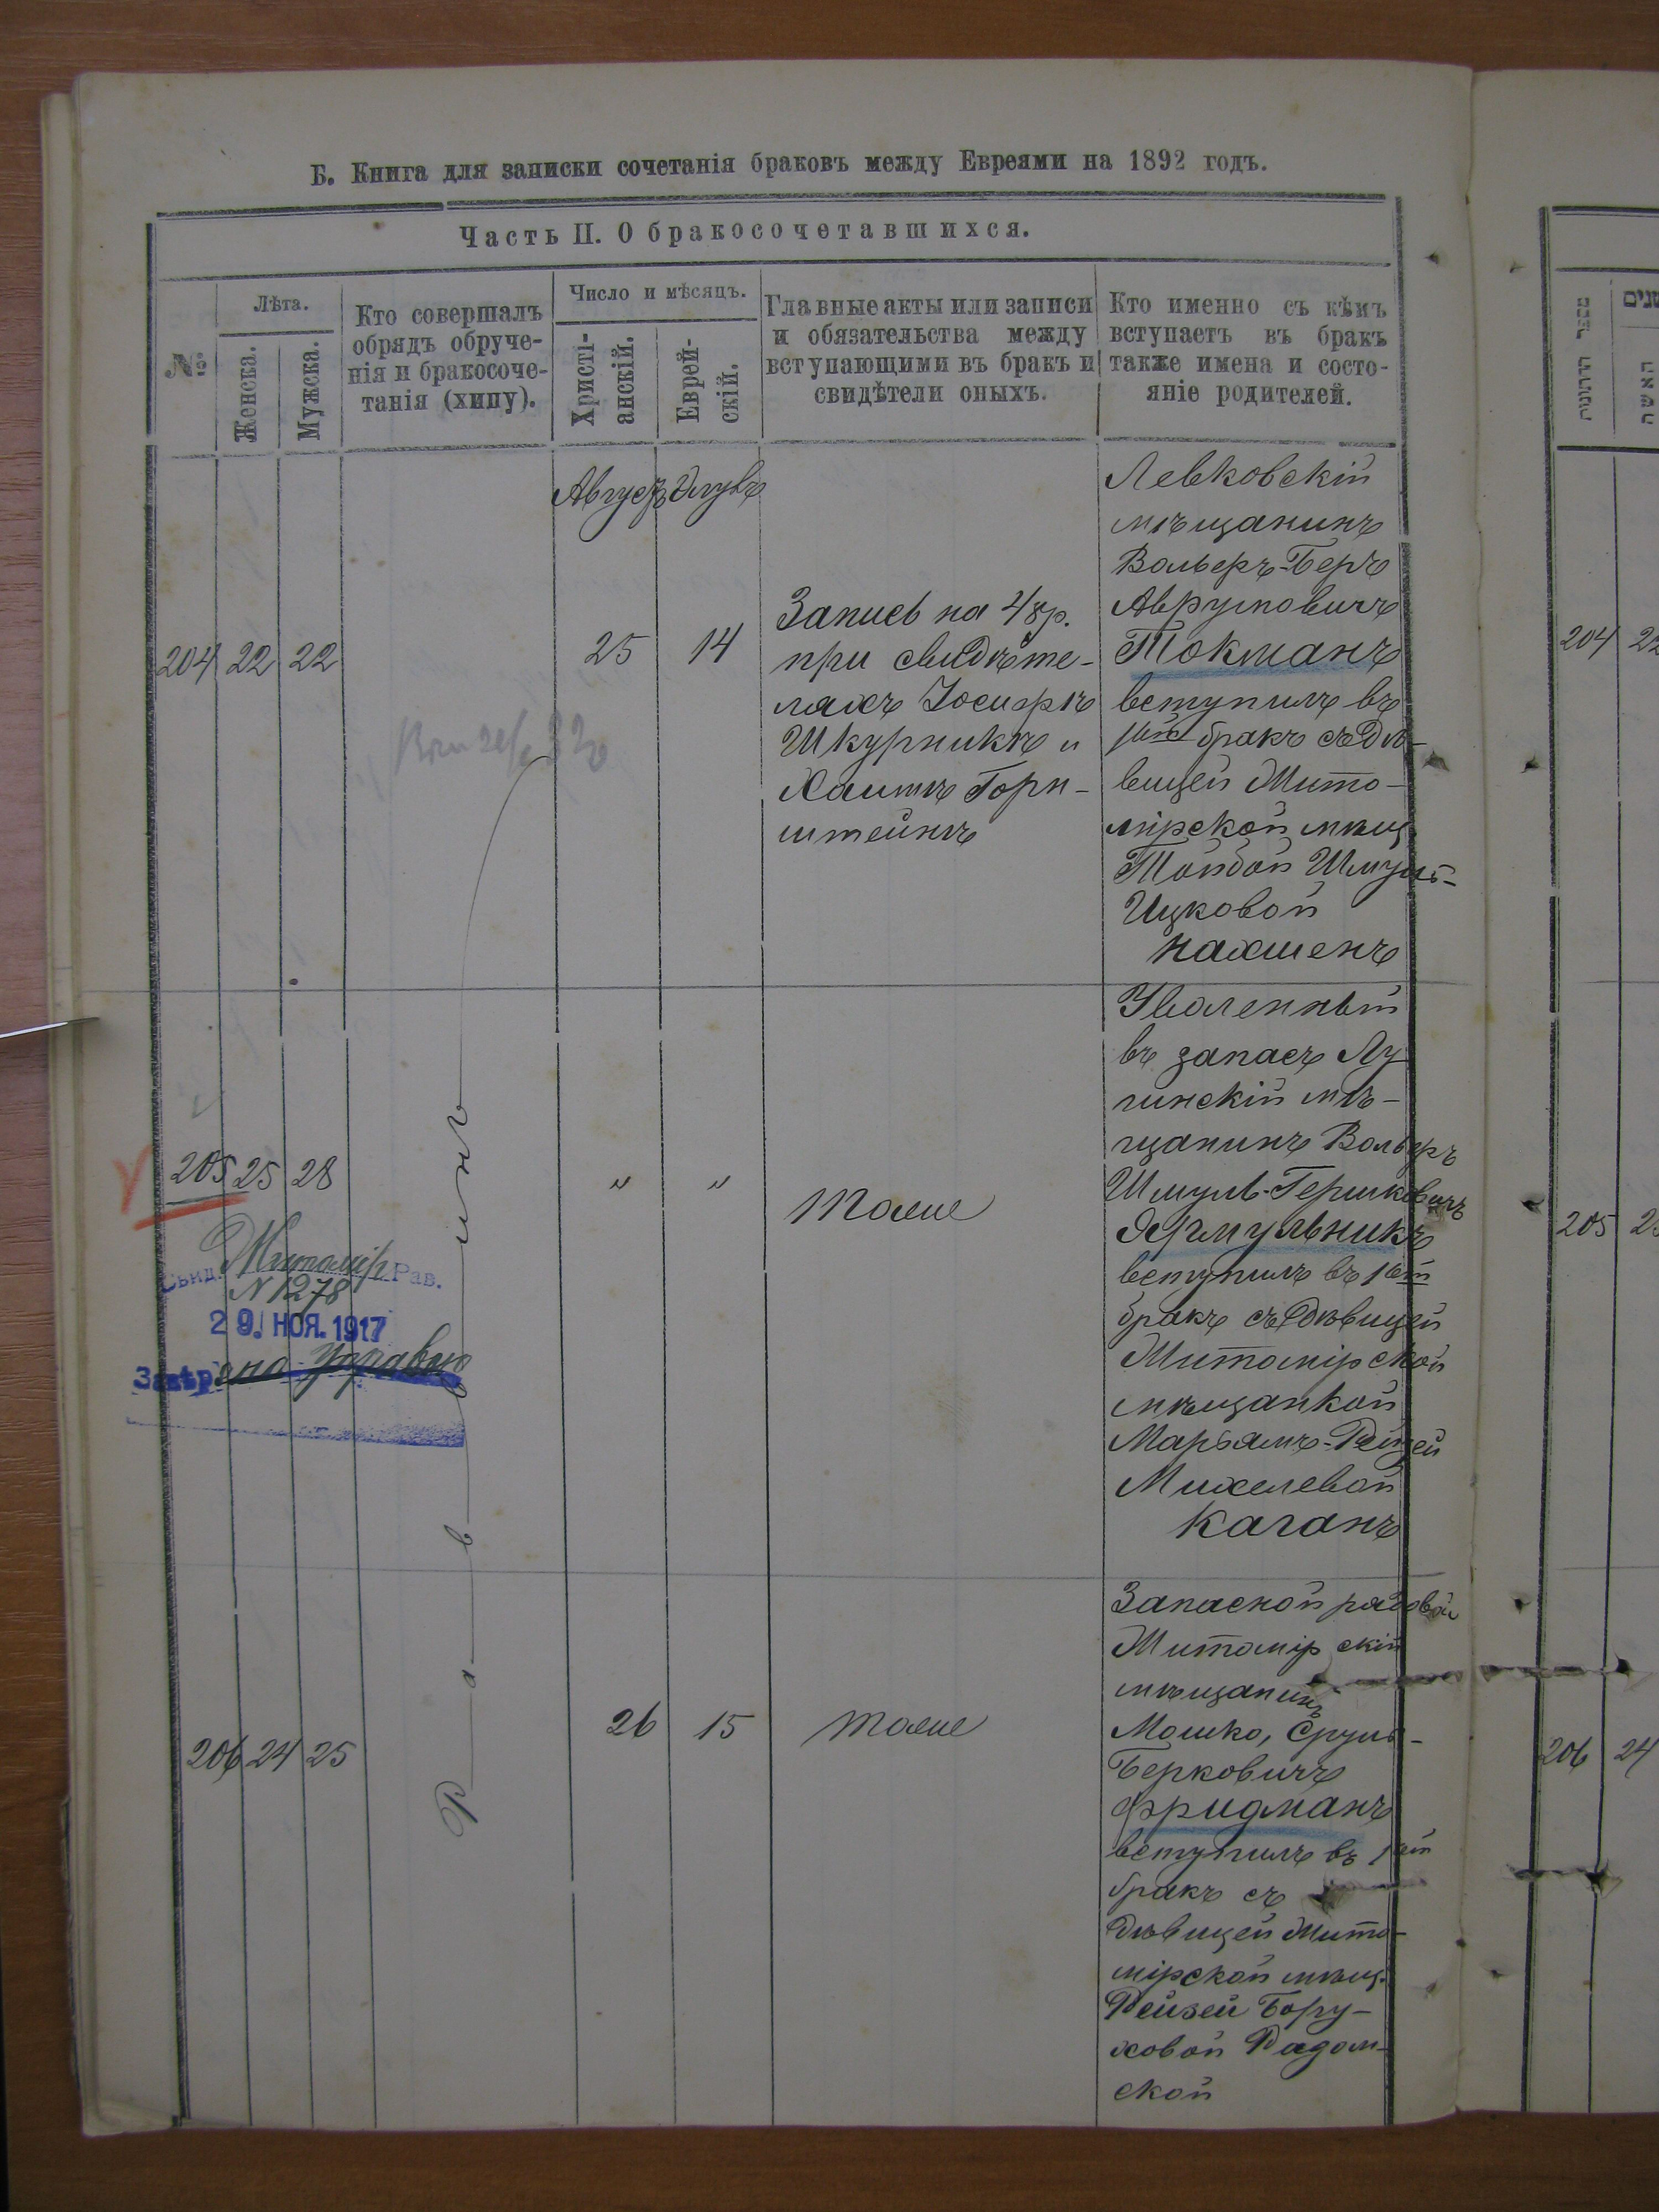 Б. Книга для записки сочетанія браковъ между Евреями на 1892 годъ.
Часть II. О бракосочетавшихся.
№
Лѣта.
Женска.
Мужска.
Кто совершалъ
обрядъ обруче-
нія и бракосоче-
танія (хипу).
Число и мѣсяцъ.
Христі-
анскій.
Еврей-
скій.
Главные акты или записи
и обязательства между
вступающими въ бракъ и
свидѣтели оныхъ.
Кто именно съ кѣмъ
вступаетъ въ бракъ
также имена и состо-
яніе родителей.
Августъ Элулъ
204 22 22
25 14
Запись на 48р.
при свидѣте-
ляхъ Іосифѣ
Шкурникѣ и
Хаимѣ Горн-
штейнѣ
Левковскій
мѣщанинъ
Вольфъ-Беръ
Аврумовичъ
Токманъ
вступилъ въ
1ый бракъ съ дѣ-
вицей Жито-
мірской мѣщ.
Тойбой Шмуль-
Ицковой
Нахшенъ
Раввинъ
205 25 28
" "
Тоже
Уволенный
въ запасъ Лу
гинскій мѣ-
щанинъ Вольфъ
Шмуль-Гершковичъ
Ярмульникъ
вступилъ въ 1ый
бракъ съ дѣвицей
Житомірской
мѣщанкой
Марьямъ-Рейзей
Михелевой
Каганъ
Свид. Житомір. Рав.
N 1278
29. НОЯ. 1917
управою
206 24 25
26 15
тоже
Запасной рядовой
Житомірскій
мѣщанинъ
Мошко, Сруль-
Берковичъ
Фридманъ
вступилъ въ 1ый
бракъ съ
дѣвицей Жито-
мірской мѣщ.
Рейзей Бору-
ховой Радом-
ской
מספר החתונות
שנים
האשה
204 22
205 25
206 24